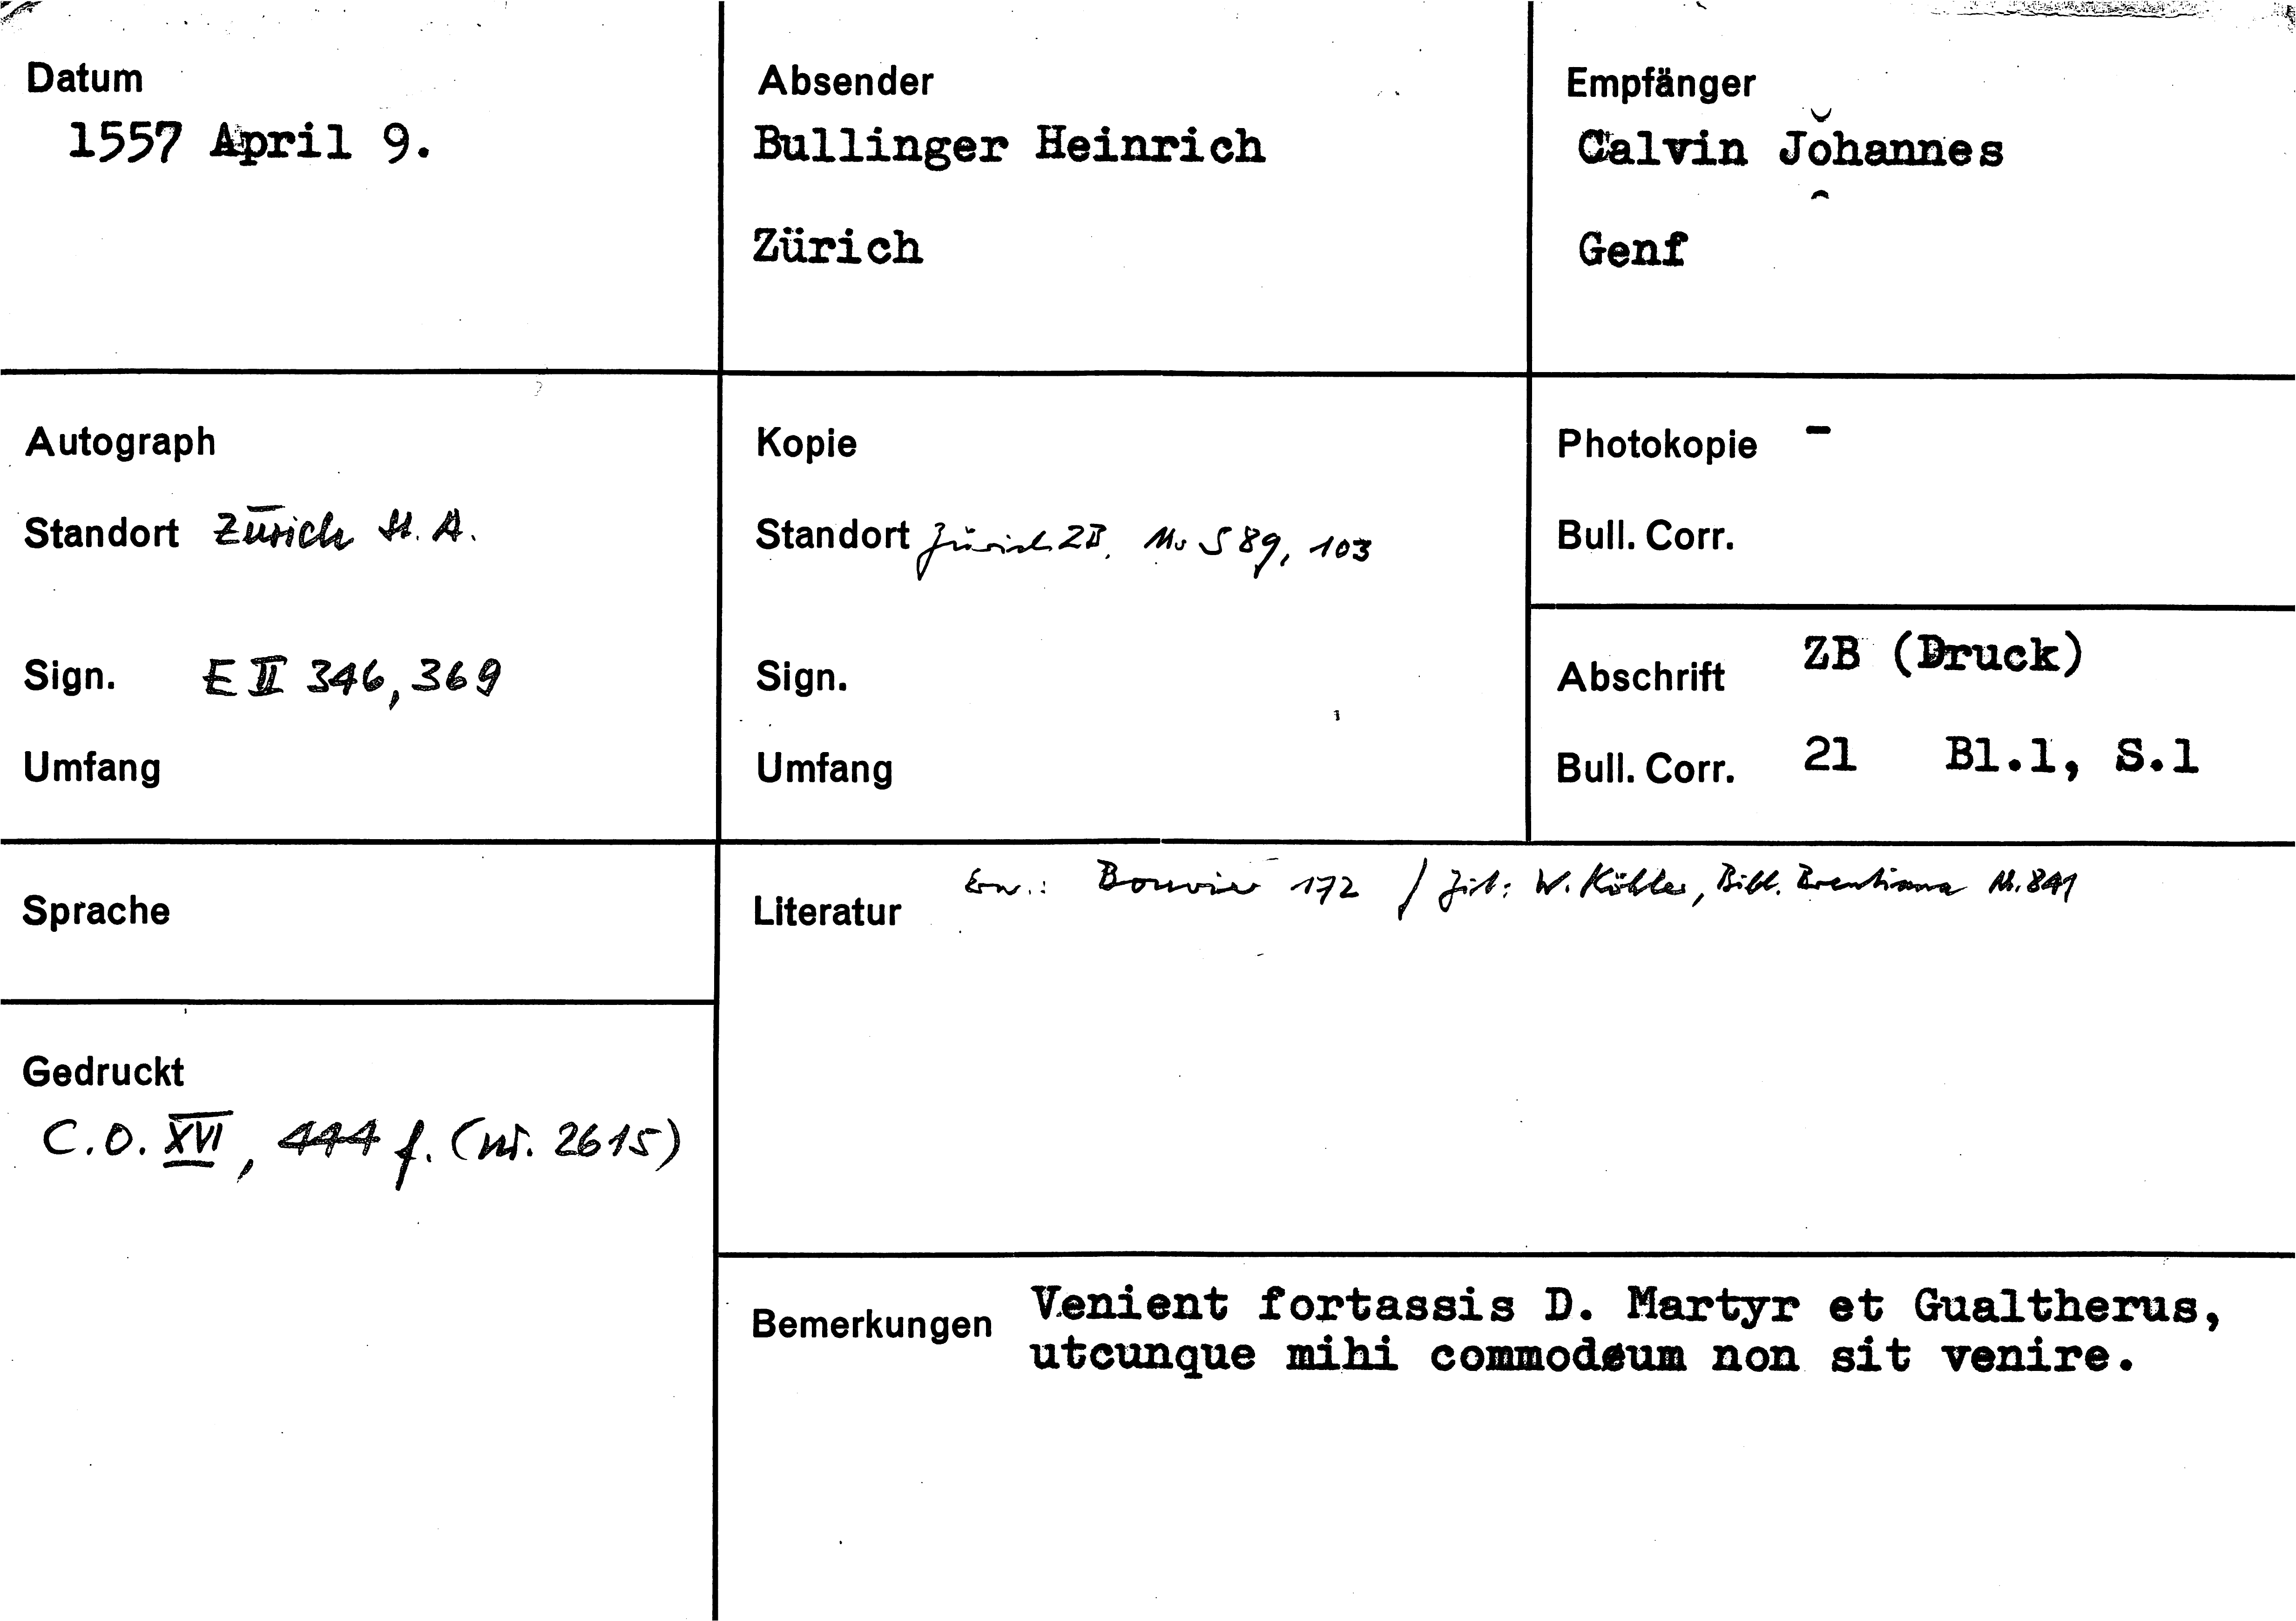 Datum
1557 April 9.
Absender
Bullinger Heinrich
Zürich
Empfänger
Calvin Johannes
Genf
Autograph
Standort Zürich St. A.
Sign. E II 346, 369
Umfang
Kopie
Standort Zürich ZB, Ms S 89, 103
Sign.
Umfang
Photokopie -
Bull. Corr.
Abschrift ZB (Druck)
Bull. Corr. 21 Bl.1, S.1
Sprache
Gedruckt
C.O. XVI, 444 f. (nr. 2615)
Literatur Erw.: Bouvier 172 / Zit: W. Köhler, Bibl. Brentiana Nr. 841
Bemerkungen Venient fortassis D. Martyr et Gualtherus,
utcunque mihi commodum non sit venire.